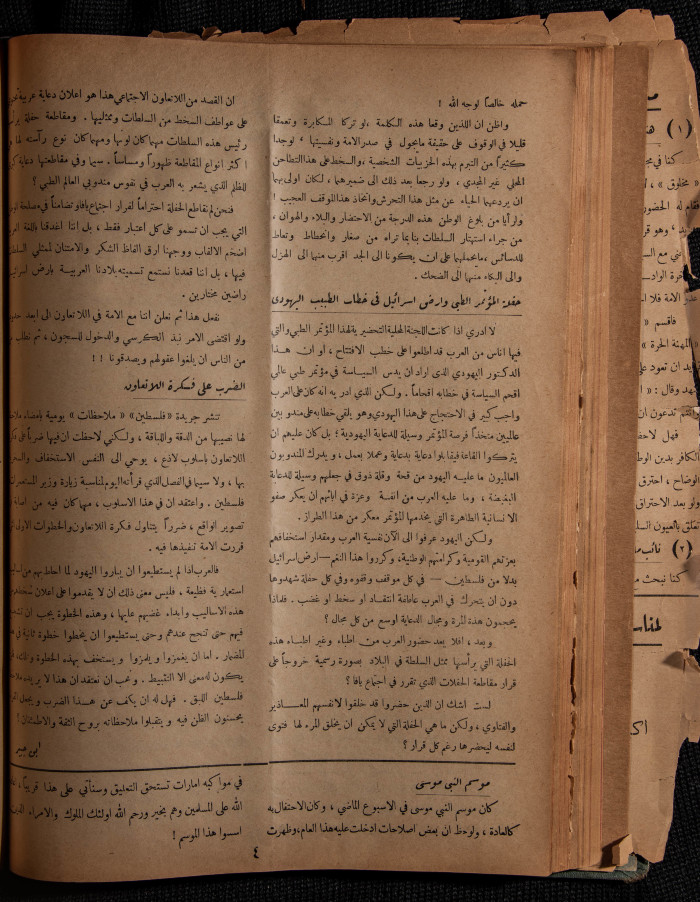 حمله خالصاً لوجه الله !
واظن ان اللذين وقعا هذه الكلمة ، لو تركا المكابرة وتعمقا
قليلا في الوقوف على حقيقة مايجول في صدر الامة ونفسيتها ، لوجدا
كثيراً من التبرم بهذه الحزبيات الشخصية ، والسخط على هذا التطاحن
المحلي غير المجدي ، ولو رجعا بعد ذلك الى ضميرهما ، لكان اولى بهما
ان يردعهما الحياء عن مثل هذا التحرش واتخاذ هذا الموقف العجيب !
ولرأيا من بلوغ الوطن هذه الدرجة من الاحتضار والبلاء والهوان ،
من جراء استهتار السلطات بنا بما تراه من صغار وانحطاط وتعاط
للدسائس ، مايحملهما على ان يكونا الى الجد اقرب منهما الى الهزل
والى البكاء منهما الى الضحك .
حفلة المؤتمر الطبي وارض اسرائيل في خطاب الطبيب اليهودي
لا ادري اذا كانت اللجنة المحلية التحضيرية لهذا المؤتمر الطبي والتي
فيها اناس من العرب قد اطلعوا على خطب الافتتاح ، أو ان هذا
الدكتور اليهودي الذي اراد ان يدس السياسة في مؤتمر طبي عالمي
اقحم السياسة في خطابه اقحاماً . ولكن الذي ادريه انه كان على العرب
واجب كبير في الاحتجاج على هذا اليهودي وهو يلقي خطابه على مندوبين
عالميين متخذاً فرصة المؤتمر وسيلة للدعاية اليهودية ؛ بل كان عليهم ان
يتركوا القاعة فيقابلوا دعاية بدعاية وعملا بعمل ، ويدرك المندوبون
العالميون ما عليه اليهود من قحة وقلة ذوق في جعلهم وسيلة للدعاية
البغيضة ، وما عليه العرب من انفة وعزة في ابائهم ان يعكر صفو
الانسانية الطاهرة التي يخدمها المؤتمر معكر من هذا الطراز .
ولكن اليهود عرفوا الى الآن نفسية العرب ومقدار استخفافهم
بعزتهم القومية وكرامتهم الوطنية ، وكرروا هذا النغم — ارض اسرائيل
بدلا من فلسطين — في كل موقف وقفوه وفي كل حفلة شهدوها
دون ان يتحرك في العرب عاطفة انتقاد او سخط او غضب . فلماذا
يحجمون هذه المرة ومجال الدعاية اوسع من كل مجال ؟
وبعد ، افلا يعد حضور العرب من اطباء وغير اطباء هذه
الحفلة التي يرأسها ممثل السلطة في البلاد بصورة رسمية خروجاً على
قرار مقاطعة الحفلات الذي تقرر في اجتماع يافا ؟
لست اشك ان الذين حضروا قد خلقوا لانفسهم المعاذير
والفتاوي ، ولكن ما هي الحفلة التي لا يمكن ان يخلق المرء لها فتوى
لنفسه ليحضرها رغم كل قرار ؟
موسم النبي موسى
كان موسم النبي موسى في الاسبوع الماضي ، وكان الاحتفال به
كالعادة ، ولوحظ ان بعض اصلاحات ادخلت عليه هذا العام ، وظهرت
ان القصد من اللاتعاون الاجتماعي هذا هو اعلان دعاية عربية
على عواطف السخط من السلطات وممثليها . ومقاطعة حفلة
رئيس هذه السلطات مهما كان لونها ومهما كان نوع رآسته لها
اكثر انواع المقاطعة ظهوراً ومساساً . سيما وفي مقاطعتها دعاية
للظلم الذي يشعر به العرب في نفوس مندوبي العالم الطبي ؟
فنحن لم نقاطع الحفلة احتراماً لقرار اجتماع يافا وتضامناً في مصلحة
التي يجب ان تسمو على كل اعتبار فقط ، بل اننا اغدقنا باللغة
اضخم الالقاب ووجهنا ارق الفاظ الشكر والامتنان لممثلي
فيها ، بل اننا قعدنا نستمع تسميته بلادنا العربية بارض
راضين مختارين .
نفعل هذا ثم نعلن اننا مع الامة في اللاتعاون الى ابعد
ولو اقتضى الامر نبذ الكرسي والدخول للسجون ، ثم نطلب
من الناس ان يلغوا عقولهم ويصدقونا !!
الضرب على فكرة اللاتعاون
تنشر جريدة « فلسطين » « ملاحظات » يومية بامضاء
لها نصيبها من الدقة واللباقة ، ولكني لاحظت ان فيها ضرباً على
اللاتعاون باسلوب لاذع ، يوحي الى النفس الاستخفاف
بها ، ولا سيما في الفصل الذي قرأته اليوم لمناسبة زيارة وزير
فلسطين . واعتقد ان في هذا الاسلوب ، مهما كان فيه من
تصوير الواقع ، ضرراً يتناول فكرة اللاتعاون والخطوات
قررت الامة تنفيذها فيه .
فالعرب اذا لم يستطيعوا ان يباروا اليهود لما احاطهم من
استعمارية فظيعة . فليس معنى ذلك ان لا يقدموا على اعلان
هذه الاساليب وابداء غضبهم عليها ، وهذه الخطوة يجب ان
فيهم حتى تنجح عندهم وحتى يستطيعوا ان يخطوا خطوة ثانية في
المضمار . اما ان يغمزوا ويلمزوا و يستخف بهذه الخطوة
يكون له معنى الا التثبيط . ونحب ان نعتقد ان هذا لا
فلسطين اللبق . فهل له ان يكف عن هذا الضرب ويجعل
يحسنون الظن فيه و يتقبلوا ملاحظاته بروح الثقة والاطمئنان !
في مواكبه امارات تستحق التعليق وسنأتي على هذا قريباً .
الله على المسلمين وهم بخير ورحم الله اولئك الملوك والامراء
اسسوا هذا الموسم !
٤